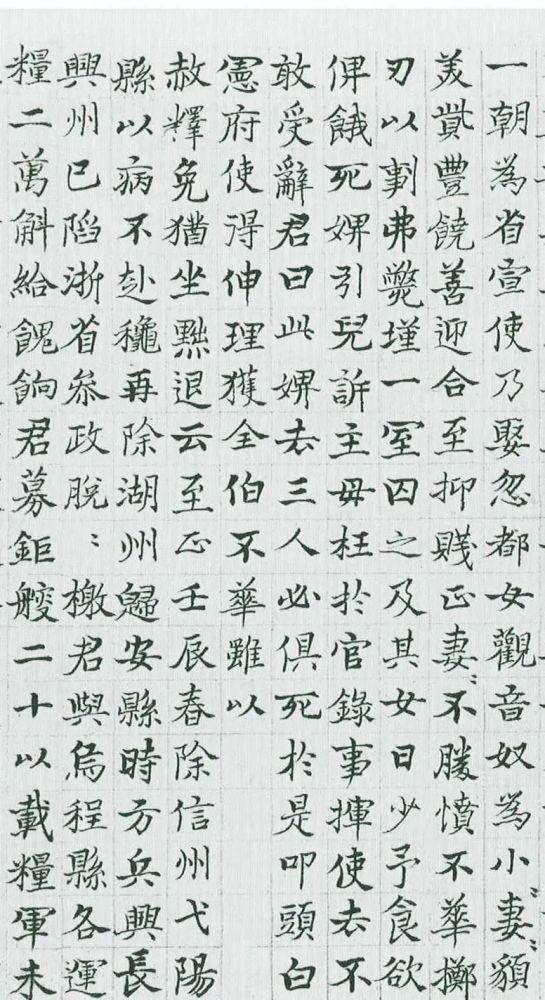 一朝為省宣使乃娶忽都女觀音奴為小妻〻貌
美貲豐饒善迎合至抑賤正妻〻不勝憤不華擲
刃以剚弗斃墐一室囚之及其女日少予食欲
俾餓死婢引兒訴主毋枉於官錄事揮使去不
敢受辭君曰此婢去三人必俱死於是叩頭白
憲府使得伸理獲全伯不華雖以
赦釋免猶坐黜退云至正壬辰春除信州弋陽
縣以病不赴穐再除湖州歸安縣時方兵興長
興州已陷浙省叅政脫〻檄君與烏程縣各運
糧二萬斛給餽餉君募鉅艘二十以載糧軍未